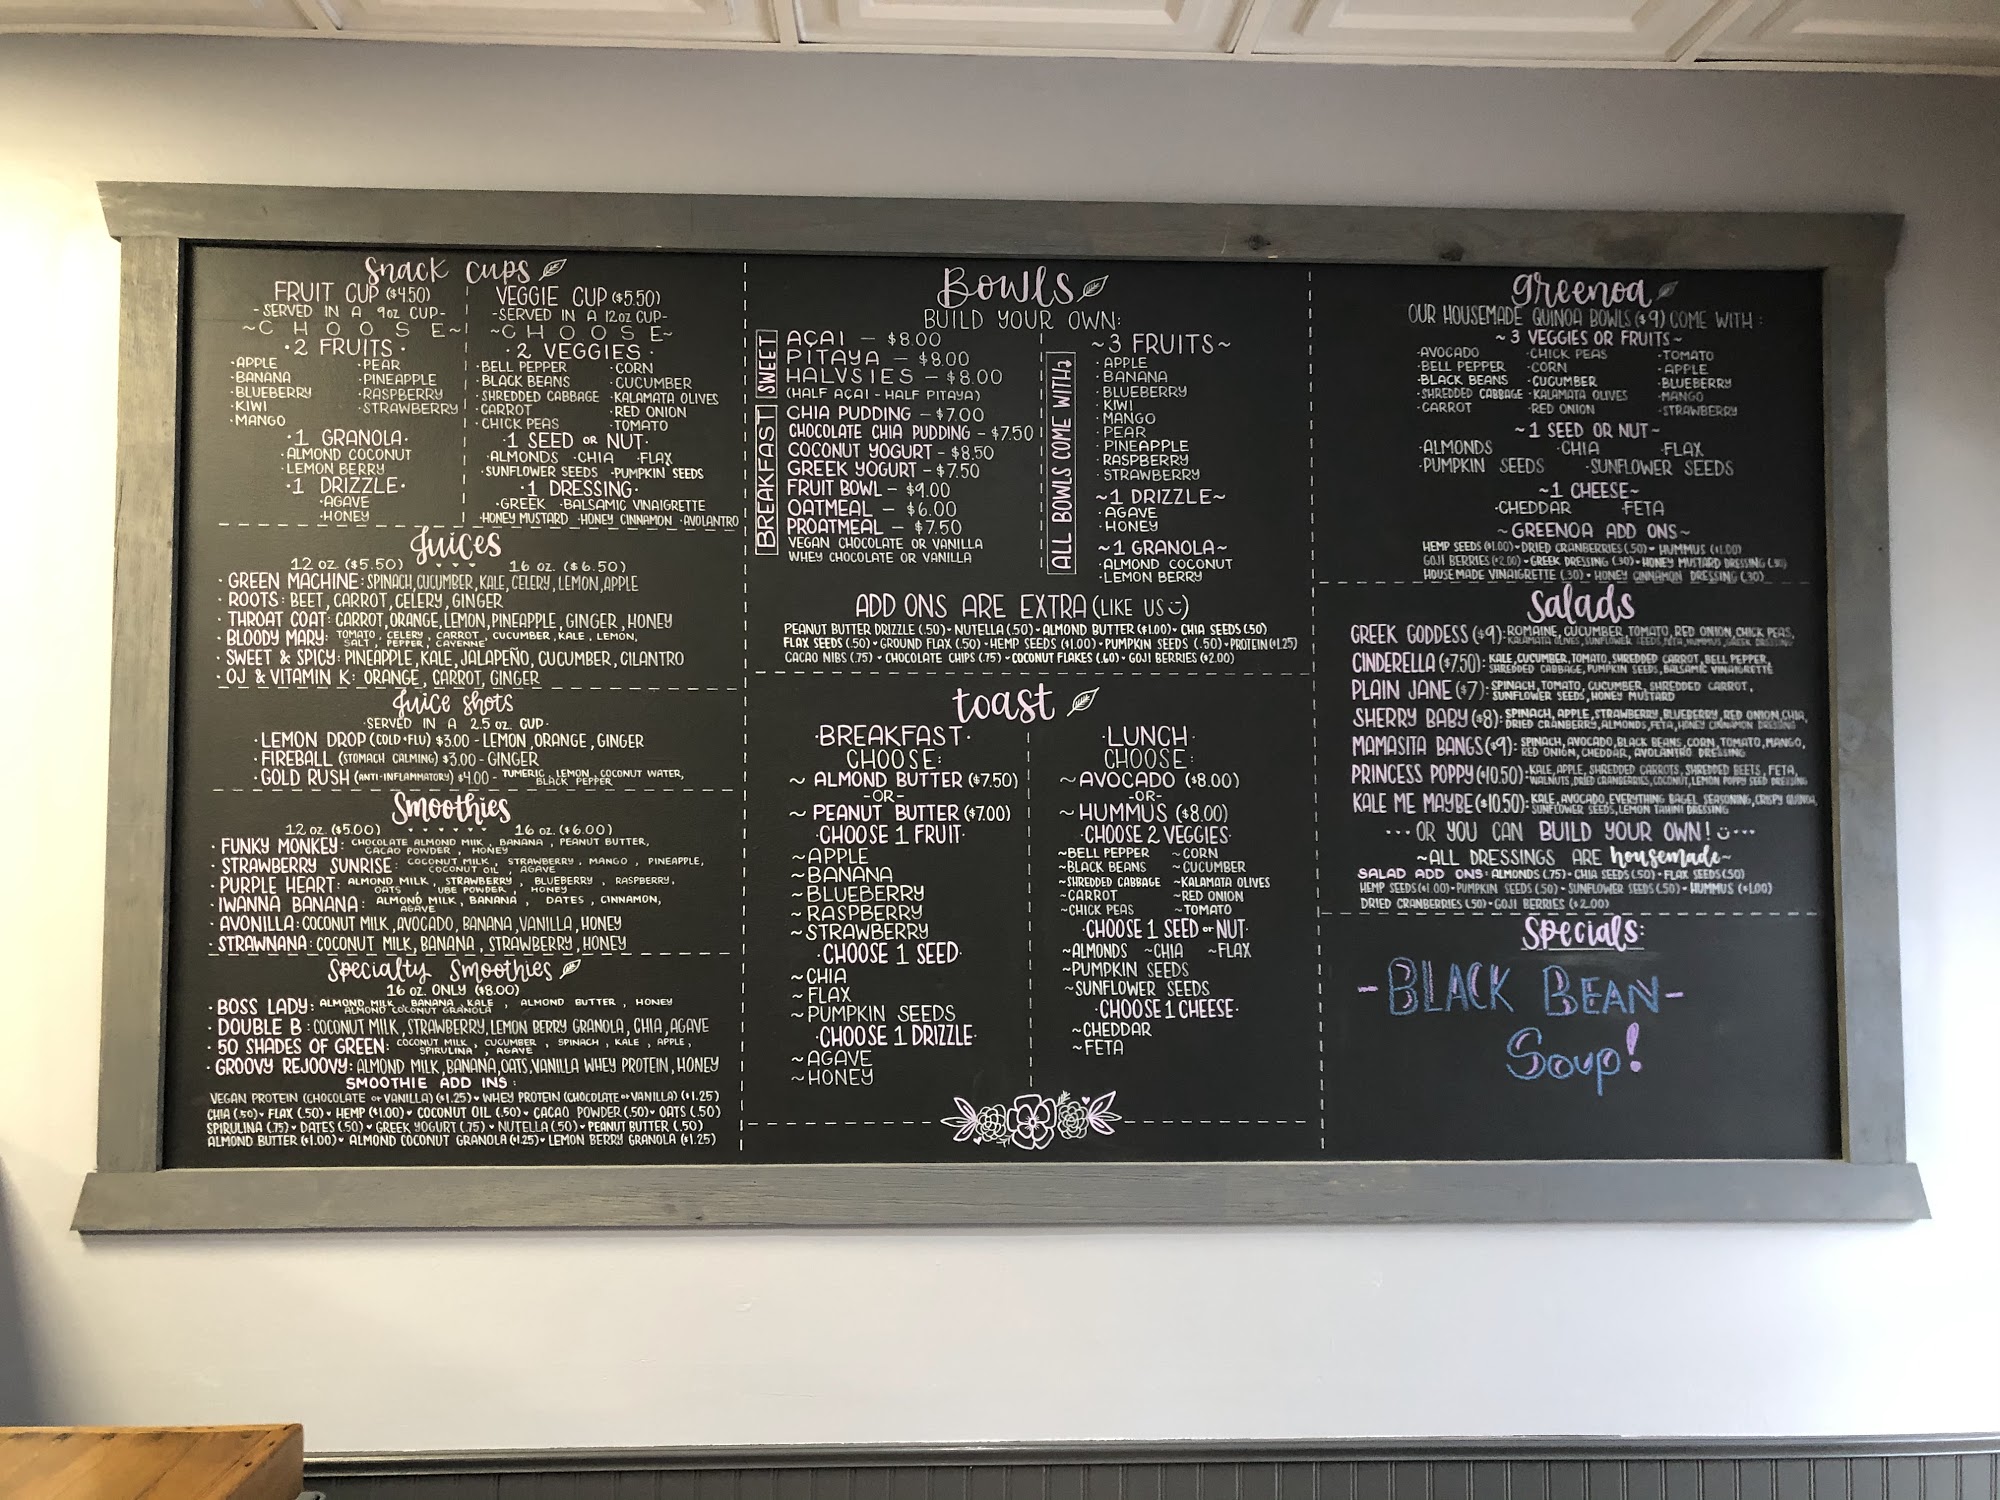 Snack Cups
FRUIT CUP ($4.50)
-SERVED IN A 9oz CUP-
~CHOOSE~
·2 FRUITS·
·APPLE ·PEAR
·BANANA ·PINEAPPLE
·BLUEBERRY ·RASPBERRY
·KIWI ·STRAWBERRY
·MANGO
·1 GRANOLA·
·ALMOND COCONUT
·LEMON BERRY
·1 DRIZZLE·
·AGAVE
·HONEY
VEGGIE CUP ($5.50)
-SERVED IN A 12oz CUP-
~CHOOSE~
·2 VEGGIES·
·BELL PEPPER ·CORN
·BLACK BEANS ·CUCUMBER
·SHREDDED CABBAGE ·KALAMATA OLIVES
·CARROT ·RED ONION
·CHICK PEAS ·TOMATO
·1 SEED OR NUT·
·ALMONDS ·CHIA ·FLAX
·SUNFLOWER SEEDS ·PUMPKIN SEEDS
·1 DRESSING·
·GREEK ·BALSAMIC VINAIGRETTE
·HONEY MUSTARD ·HONEY CINNAMON ·AVOLANTRO
Juices
12 oz. ($5.50) 16 oz. ($6.50)
· GREEN MACHINE: SPINACH, CUCUMBER, KALE, CELERY, LEMON, APPLE
· ROOTS: BEET, CARROT, CELERY, GINGER
· THROAT COAT: CARROT, ORANGE, LEMON, PINEAPPLE, GINGER, HONEY
· BLOODY MARY: TOMATO, CELERY, CARROT, CUCUMBER, KALE, LEMON,
SALT, PEPPER, CAYENNE
· SWEET & SPICY: PINEAPPLE, KALE, JALAPEÑO, CUCUMBER, CILANTRO
· OJ & VITAMIN K: ORANGE, CARROT, GINGER
Juice Shots
·SERVED IN A 2.5 oz. CUP·
· LEMON DROP (COLD+FLU) $3.00 - LEMON, ORANGE, GINGER
· FIREBALL (STOMACH CALMING) $3.00 - GINGER
· GOLD RUSH (ANTI-INFLAMMATORY) $4.00 - TUMERIC, LEMON, COCONUT WATER,
BLACK PEPPER
Smoothies
12 oz. ($5.00) 16 oz. ($6.00)
· FUNKY MONKEY: CHOCOLATE ALMOND MILK, BANANA, PEANUT BUTTER,
CACAO POWDER, HONEY
· STRAWBERRY SUNRISE: COCONUT MILK, STRAWBERRY, MANGO, PINEAPPLE,
COCONUT OIL, AGAVE
· PURPLE HEART: ALMOND MILK, STRAWBERRY, BLUEBERRY, RASPBERRY,
OATS, UBE POWDER, HONEY
· IWANNA BANANA: ALMOND MILK, BANANA, DATES, CINNAMON,
AGAVE
· AVONILLA: COCONUT MILK, AVOCADO, BANANA, VANILLA, HONEY
· STRAWNANA: COCONUT MILK, BANANA, STRAWBERRY, HONEY
Specialty Smoothies
16 oz. ONLY ($8.00)
· BOSS LADY: ALMOND MILK, BANANA, KALE, ALMOND BUTTER, HONEY
ALMOND COCONUT GRANOLA
· DOUBLE B: COCONUT MILK, STRAWBERRY, LEMON BERRY GRANOLA, CHIA, AGAVE
· 50 SHADES OF GREEN: COCONUT MILK, CUCUMBER, SPINACH, KALE, APPLE,
SPIRULINA, AGAVE
· GROOVY REJOOVY: ALMOND MILK, BANANA, OATS, VANILLA WHEY PROTEIN, HONEY
SMOOTHIE ADD INS:
VEGAN PROTEIN (CHOCOLATE or VANILLA) ($1.25) WHEY PROTEIN (CHOCOLATE or VANILLA) ($1.25)
CHIA (.50) FLAX (.50) HEMP ($1.00) COCONUT OIL (.50) CACAO POWDER (.50) OATS (.50)
SPIRULINA (.75) DATES (.50) GREEK YOGURT (.75) NUTELLA (.50) PEANUT BUTTER (.50)
ALMOND BUTTER ($1.00) ALMOND COCONUT GRANOLA ($1.25) LEMON BERRY GRANOLA ($1.25)
Bowls
BUILD YOUR OWN:
SWEET
AÇAI - $8.00
PITAYA - $8.00
HALVSIES - $8.00
(HALF AÇAI - HALF PITAYA)
BREAKFAST
CHIA PUDDING - $7.00
CHOCOLATE CHIA PUDDING - $7.50
COCONUT YOGURT - $8.50
GREEK YOGURT - $7.50
FRUIT BOWL - $9.00
OATMEAL - $6.00
PROATMEAL - $7.50
VEGAN CHOCOLATE OR VANILLA
WHEY CHOCOLATE OR VANILLA
ALL BOWLS COME WITH
~3 FRUITS~
·APPLE
·BANANA
·BLUEBERRY
·KIWI
·MANGO
·PEAR
·PINEAPPLE
·RASPBERRY
·STRAWBERRY
~1 DRIZZLE~
·AGAVE
·HONEY
~1 GRANOLA~
·ALMOND COCONUT
·LEMON BERRY
ADD ONS ARE EXTRA (LIKE US)
PEANUT BUTTER DRIZZLE (.50) NUTELLA (.50) ALMOND BUTTER ($1.00) CHIA SEEDS (.50)
FLAX SEEDS (.50) GROUND FLAX (.50) HEMP SEEDS ($1.00) PUMPKIN SEEDS (.50) PROTEIN ($1.25)
CACAO NIBS (.75) CHOCOLATE CHIPS (.75) COCONUT FLAKES (.60) GOJI BERRIES ($2.00)
toast
·BREAKFAST·
CHOOSE:
~ ALMOND BUTTER ($7.50)
-OR-
~ PEANUT BUTTER ($7.00)
·CHOOSE 1 FRUIT·
~APPLE
~BANANA
~BLUEBERRY
~RASPBERRY
~STRAWBERRY
·CHOOSE 1 SEED·
~CHIA
~FLAX
~PUMPKIN SEEDS
·CHOOSE 1 DRIZZLE·
~AGAVE
~HONEY
·LUNCH·
CHOOSE:
~AVOCADO ($8.00)
-OR-
~HUMMUS ($8.00)
·CHOOSE 2 VEGGIES·
~BELL PEPPER ~CORN
~BLACK BEANS ~CUCUMBER
~SHREDDED CABBAGE ~KALAMATA OLIVES
~CARROT ~RED ONION
~CHICK PEAS ~TOMATO
·CHOOSE 1 SEED or NUT·
~ALMONDS ~CHIA ~FLAX
~PUMPKIN SEEDS
~SUNFLOWER SEEDS
·CHOOSE 1 CHEESE·
~CHEDDAR
~FETA
greenoa
OUR HOUSEMADE QUINOA BOWLS ($9) COME WITH:
~3 VEGGIES OR FRUITS~
·AVOCADO ·CHICK PEAS ·TOMATO
·BELL PEPPER ·CORN ·APPLE
·BLACK BEANS ·CUCUMBER ·BLUEBERRY
·SHREDDED CABBAGE ·KALAMATA OLIVES ·MANGO
·CARROT ·RED ONION ·STRAWBERRY
~1 SEED OR NUT~
·ALMONDS ·CHIA ·FLAX
·PUMPKIN SEEDS ·SUNFLOWER SEEDS
~1 CHEESE~
·CHEDDAR ·FETA
~GREENOA ADD ONS~
HEMP SEEDS ($1.00) DRIED CRANBERRIES (.50) HUMMUS ($1.00)
GOJI BERRIES ($2.00) GREEK DRESSING (.30) HONEY MUSTARD DRESSING (.30)
HOUSEMADE VINAIGRETTE (.30) HONEY CINNAMON DRESSING (.30)
Salads
GREEK GODDESS ($9): ROMAINE, CUCUMBER, TOMATO, RED ONION, CHICK PEAS,
KALAMATA OLIVES, SUNFLOWER SEEDS, FETA, HUMMUS, GREEK DRESSING
CINDERELLA ($7.50): KALE, CUCUMBER, TOMATO, SHREDDED CARROT, BELL PEPPER,
SHREDDED CABBAGE, PUMPKIN SEEDS, BALSAMIC VINAIGRETTE
PLAIN JANE ($7): SPINACH, TOMATO, CUCUMBER, SHREDDED CARROT,
SUNFLOWER SEEDS, HONEY MUSTARD
SHERRY BABY ($8): SPINACH, APPLE, STRAWBERRY, BLUEBERRY, RED ONION, CHIA,
DRIED CRANBERRY, ALMONDS, FETA, HONEY CINNAMON DRESSING
MAMASITA BANGS ($9): SPINACH, AVOCADO, BLACK BEANS, CORN, TOMATO, MANGO,
RED ONION, CHEDDAR, AVOLANTRO DRESSING
PRINCESS POPPY ($10.50): KALE, APPLE, SHREDDED CARROTS, SHREDDED BEETS, FETA,
WALNUTS, DRIED CRANBERRIES, COCONUT, LEMON POPPY SEED DRESSING
KALE ME MAYBE ($10.50): KALE, AVOCADO, EVERYTHING BAGEL SEASONING, CRISPY QUINOA,
SUNFLOWER SEEDS, LEMON TAHINI DRESSING
···OR YOU CAN BUILD YOUR OWN!···
~ALL DRESSINGS ARE housemade~
SALAD ADD ONS: ALMONDS (.75) CHIA SEEDS (.50) FLAX SEEDS (.50)
HEMP SEEDS ($1.00) PUMPKIN SEEDS (.50) SUNFLOWER SEEDS (.50) HUMMUS ($1.00)
DRIED CRANBERRIES (.50) GOJI BERRIES ($2.00)
Specials:
-BLACK BEAN-
Soup!